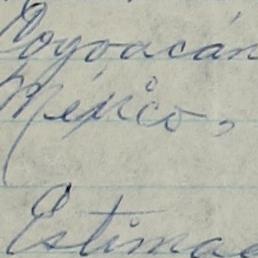 Coyoacán
México,
Estimad